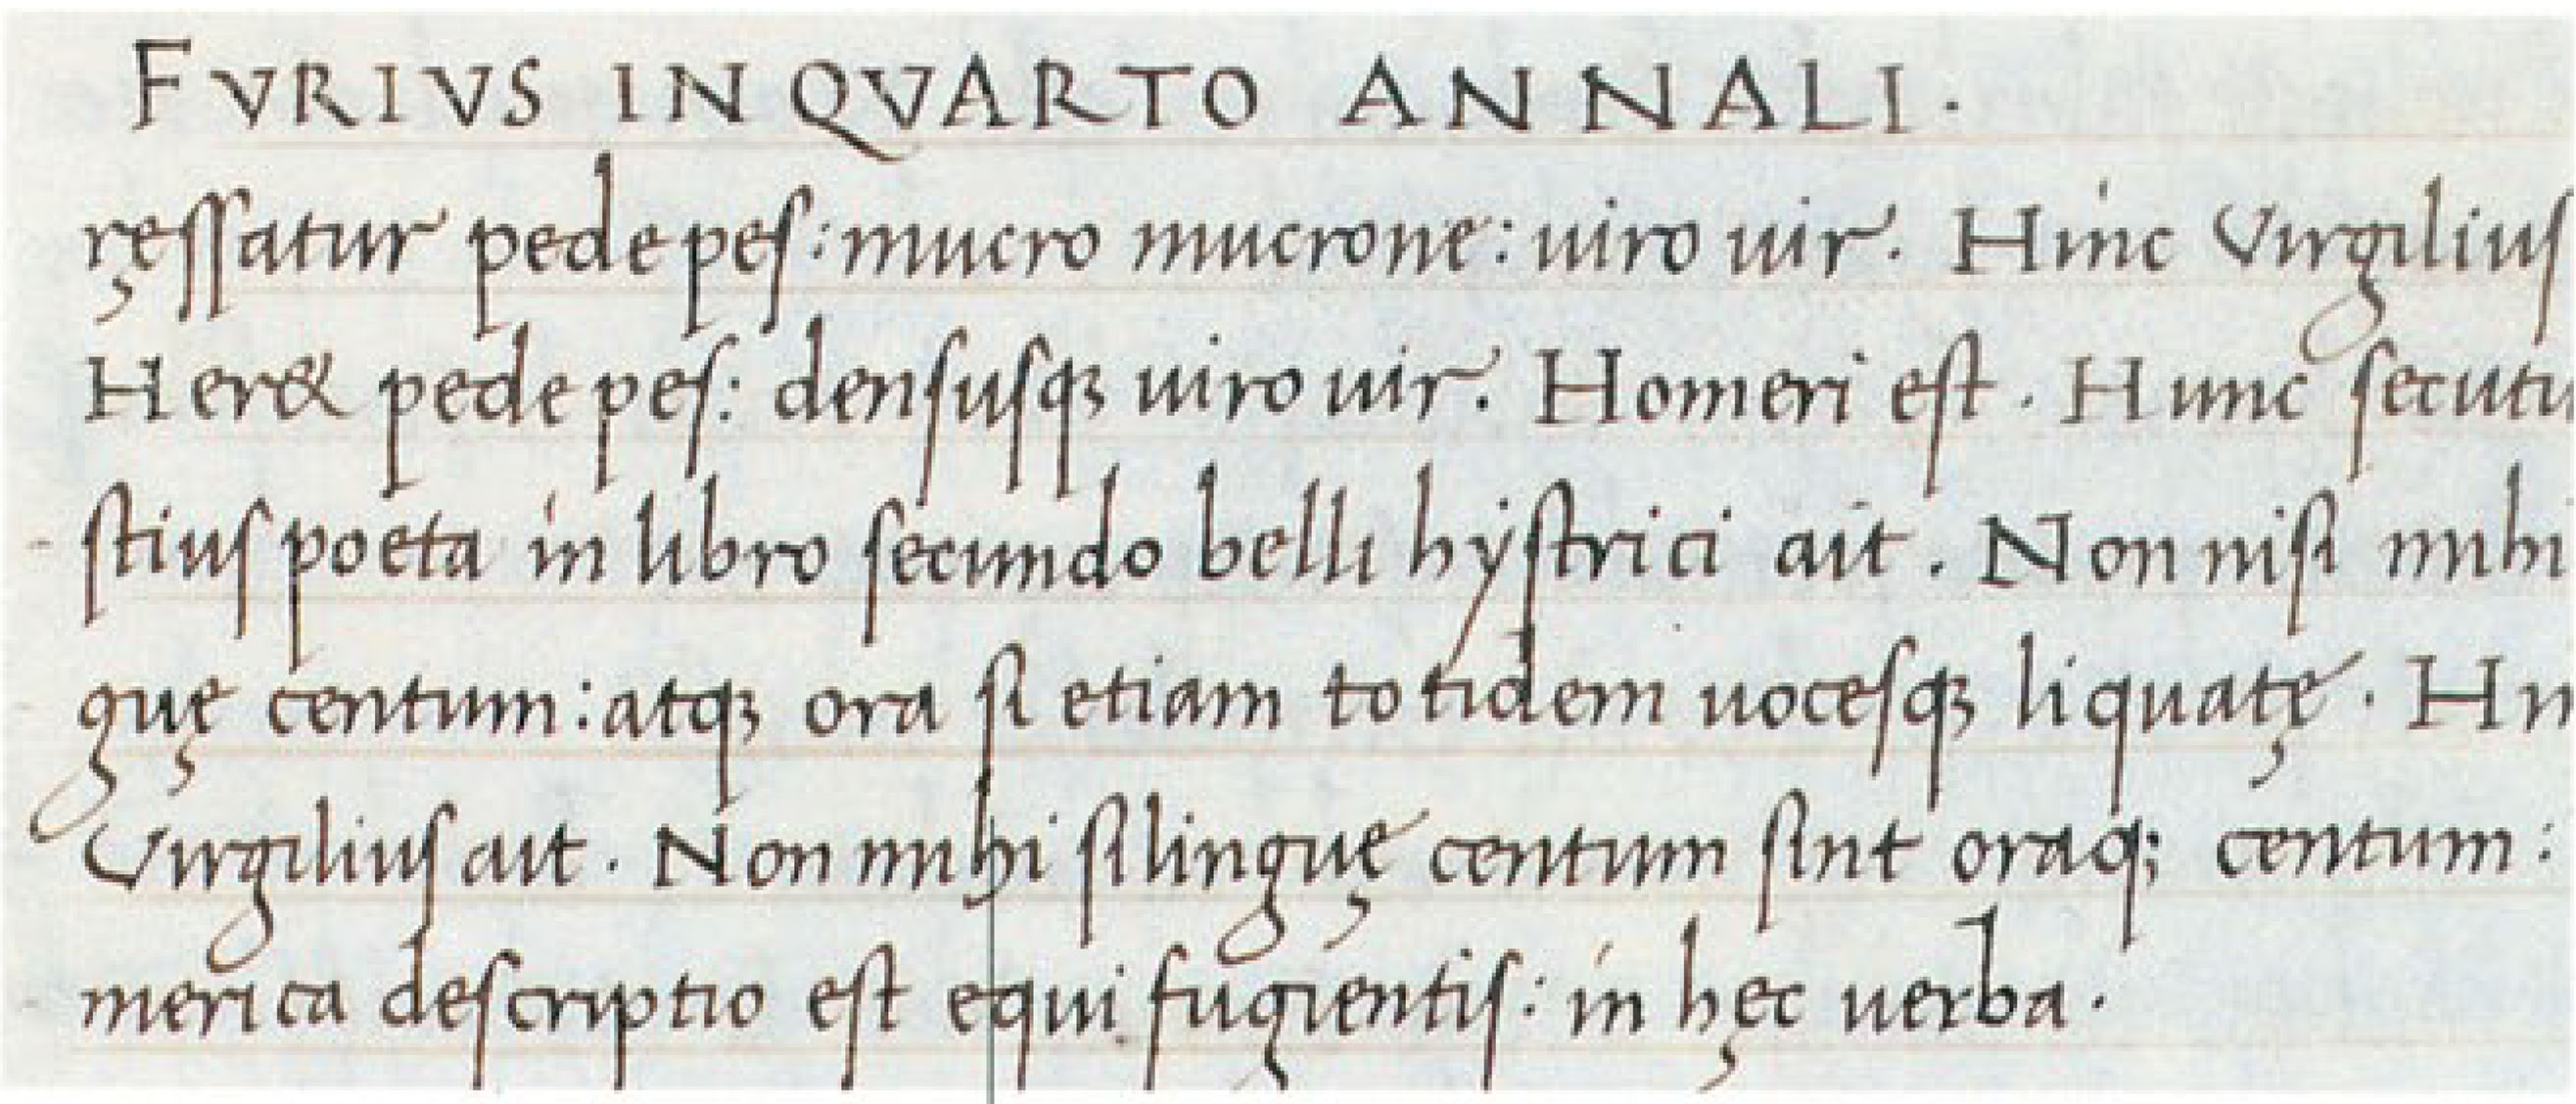 FVRIVS IN QVARTO ANNALI.
ręssatur pede pes: mucro mucrone: uiro uir. Hinc Virgilius
Her& pede pes: densusq; uiro uir. Homeri est. Hunc secutu
stius poeta in libro secundo belli hystrici ait. Non nisi mihi
guę centum: atq; ora si etiam totidem uocesq; liquatę. Hn
Virgilius ait. Non mihi si linguę centum sint oraq; centum:
merica descriptio est equi fugientis: in hęc uerba.